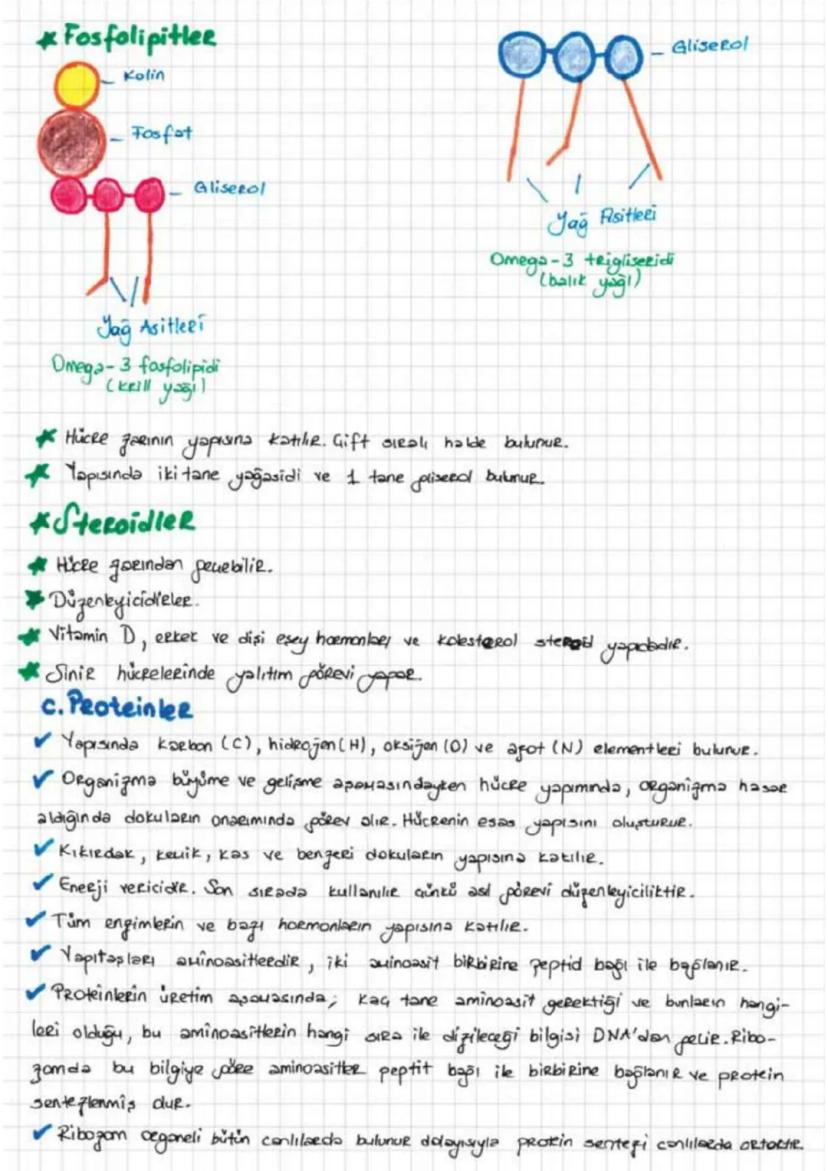 Fosfolipitler
Kolin
Fosfat
Gliserol
Yağ Asitleri
Omega-3 fosfolipidi
(krill yağı)
Gliserol
Yağ Asitleri
Omega-3 trigliseridi
(balık yağı)
Hücre zarının yapısına katılır. Çift sıralı halde bulunur.
Yapısında iki tane yağasidi ve 1 tane gliserol bulunur.
Steroidler
Hücre zarından geçebilir.
Düzenleyicidirler.
Vitamin D, erkek ve dişi eşey hormonları ve kolesterol steroid yapıdadır.
Sinir hücrelerinde yalıtım görevi yapar.
c. Proteinler
Yapısında karbon (C), hidrojen (H), oksijen (O) ve azot (N) elementleri bulunur.
Organizma büyüme ve gelişme aşamasındayken hücre yapımında, organizma hasar
aldığında dokuların onarımında görev alır. Hücrenin esas yapısını oluşturur.
Kıkırdak, kemik, kas ve benzeri dokuların yapısına katılır.
Enerji vericidir. Son sırada kullanılır çünkü asıl görevi düzenleyiciliktir.
Tüm enzimlerin ve bazı hormonların yapısına katılır.
Yapıtaşları aminoasitlerdir, iki aminoasit birbirine peptid bağı ile bağlanır.
Proteinlerin üretim aşamasında; kaç tane aminoasit gerektiği ve bunların hangi-
leri olduğu, bu aminoasitlerin hangi sıra ile dizileceği bilgisi DNA'dan gelir. Ribo-
zomda bu bilgiye göre aminoasitler peptit bağı ile birbirine bağlanır ve protein
sentezlenmiş olur.
Ribozom organeli bütün canlılarda bulunur dolayısıyla protein sentezi canlılarda ortaktır.